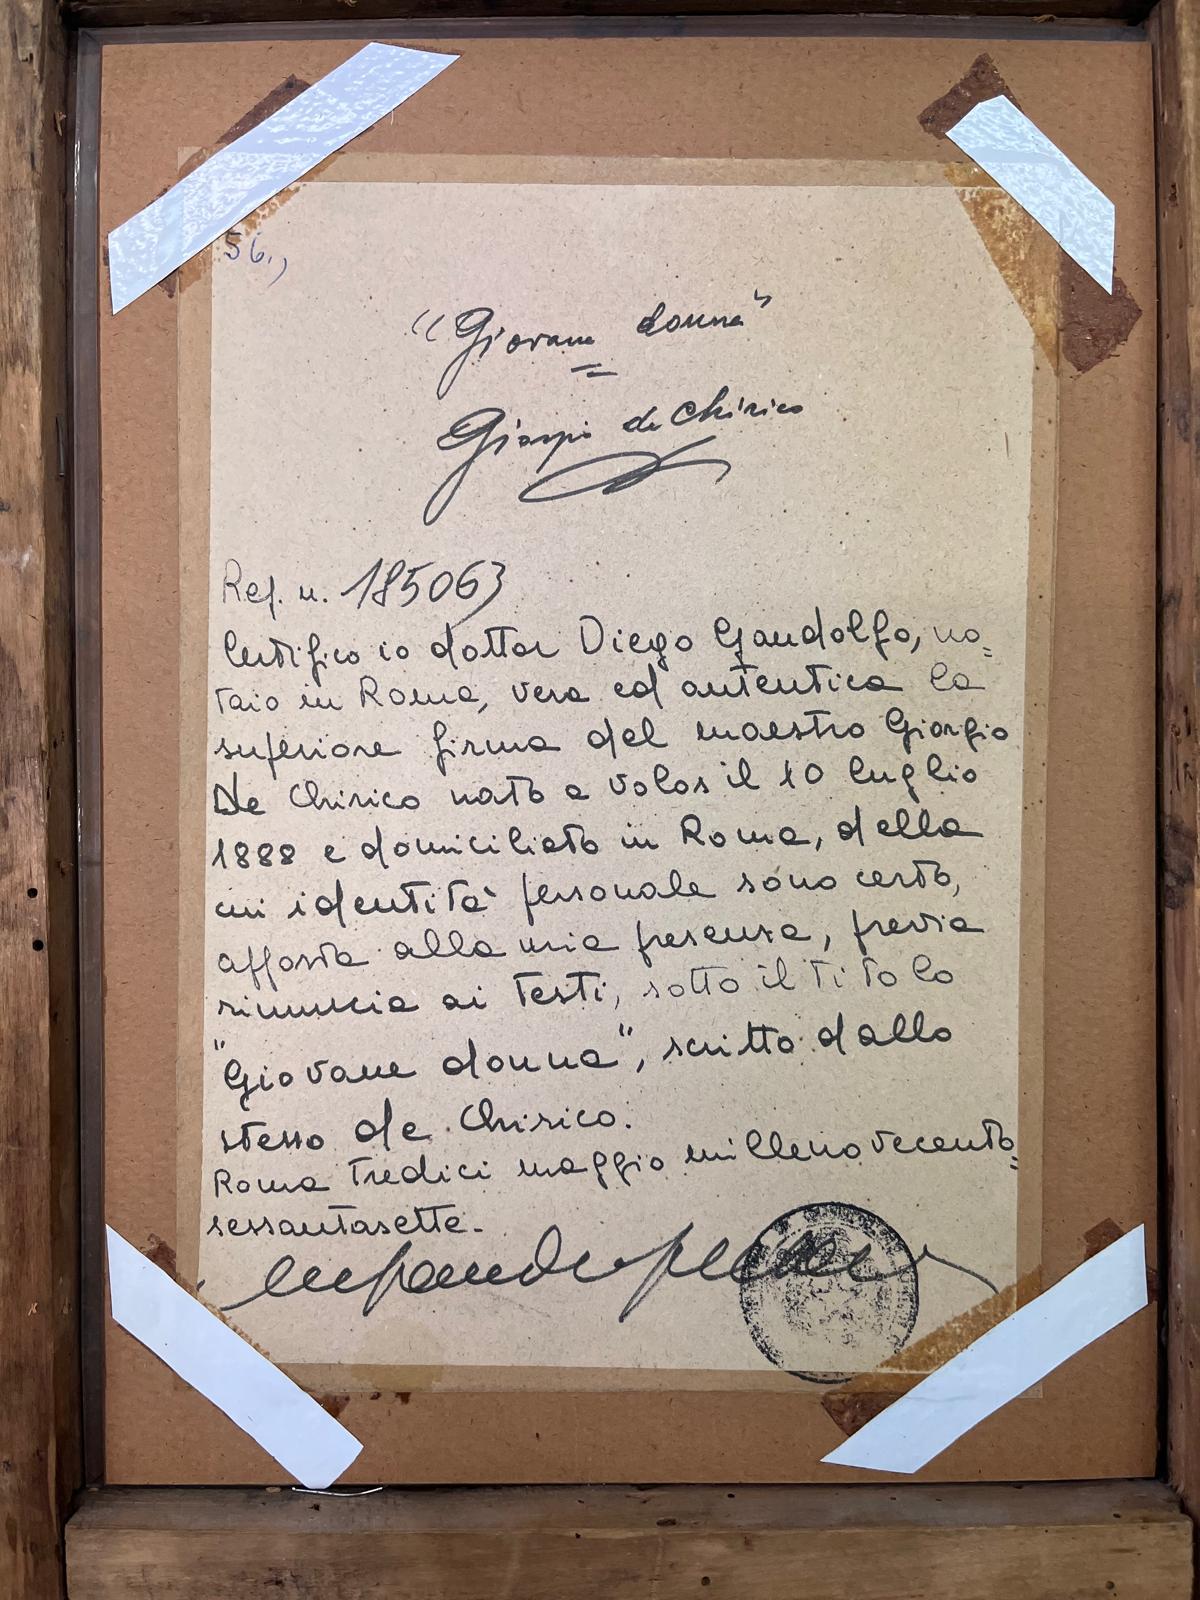 56.,
"Giovane donna"
Giorgio de Chirico
Rep. n. 185063
Certifico io dottor Diego Gandolfo, no=
taio in Roma, vera ed autentica la
superiore firma del maestro Giorgio
De Chirico nato a Volos il 10 luglio
1888 e domiciliato in Roma, della
cui identità personale sono certo,
apposta alla mia presenza, previa
rinuncia ai testi, sotto il titolo
"Giovane donna", scritto dallo
stesso de Chirico.
Roma tredici maggio millenovecento=
sessantasette.